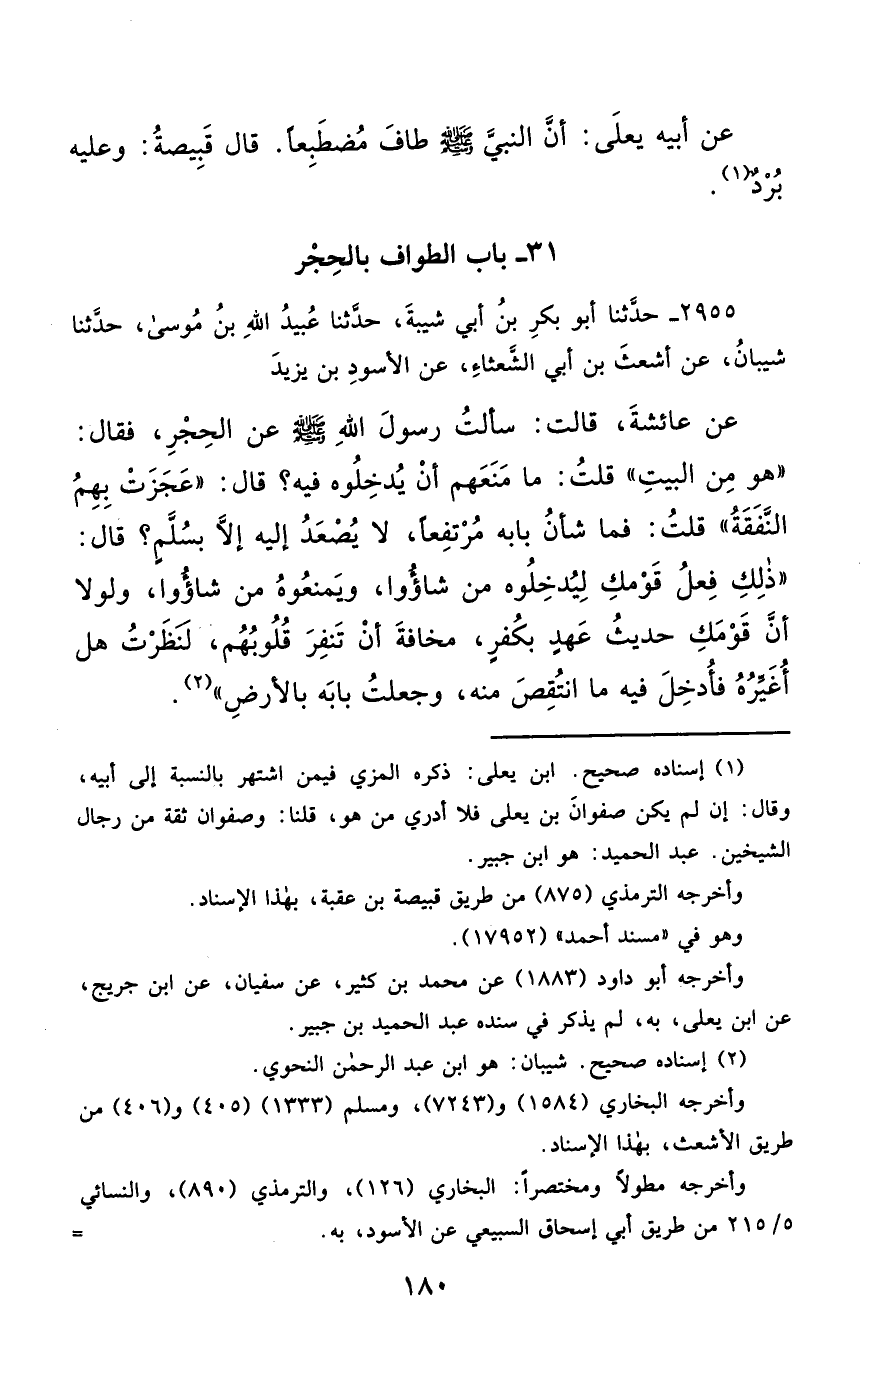 عن أبيه يعلَى: أنَّ النبيَّ ﷺ طافَ مُضطَبِعاً. قال قَبِيصةُ: وعليه
بُرْدٌ(١).
٣١ـ باب الطواف بالحِجْر
٢٩٥٥ـ حدَّثنا أبو بكرِ بنُ أبي شيبةَ، حدَّثنا عُبيدُ اللهِ بنُ مُوسىٰ، حدَّثنا
شيبانُ، عن أشعثَ بن أبي الشَّعثاءِ، عن الأسودِ بن يزيدَ
عن عائشةَ، قالت: سألتُ رسولَ اللهِ ﷺ عن الحِجْرِ، فقال:
«هو مِن البيتِ» قلتُ: ما مَنَعَهم أنْ يُدخِلُوه فيه؟ قال: «عَجَزَتْ بِهِمُ
النَّفَقَةُ» قلتُ: فما شأنُ بابه مُرْتفِعاً، لا يُصْعَدُ إليه إلاَّ بسُلَّمٍ؟ قال:
«ذٰلِكِ فِعلُ قَوْمكِ لِيُدخِلُوه من شاؤُوا، ويَمنعُوهُ من شاؤُوا، ولولا
أنَّ قَوْمَكِ حديثُ عَهدٍ بكُفرٍ، مخافةَ أنْ تَنفِرَ قُلُوبُهُم، لَنَظَرْتُ هل
أُغَيِّرُهُ فأُدخِلَ فيه ما انتُقِصَ منه، وجعلتُ بابَه بالأرضِ»(٢).
(١) إسناده صحيح. ابن يعلى: ذكره المزي فيمن اشتهر بالنسبة إلى أبيه،
وقال: إن لم يكن صفوانَ بن يعلى فلا أدري من هو، قلنا: وصفوان ثقة من رجال
الشيخين. عبد الحميد: هو ابن جبير.
وأخرجه الترمذي (٨٧٥) من طريق قبيصة بن عقبة، بهٰذا الإسناد.
وهو في «مسند أحمد» (١٧٩٥٢).
وأخرجه أبو داود (١٨٨٣) عن محمد بن كثير، عن سفيان، عن ابن جريج،
عن ابن يعلى، به، لم يذكر في سنده عبد الحميد بن جبير.
(٢) إسناده صحيح. شيبان: هو ابن عبد الرحمٰن النحوي.
وأخرجه البخاري (١٥٨٤) و(٧٢٤٣)، ومسلم (١٣٣٣) (٤٠٥) و(٤٠٦) من
طريق الأشعث، بهٰذا الإسناد.
وأخرجه مطولاً ومختصراً: البخاري (١٢٦)، والترمذي (٨٩٠)، والنسائي
٢١٥/٥ من طريق أبي إسحاق السبيعي عن الأسود، به. =
١٨٠